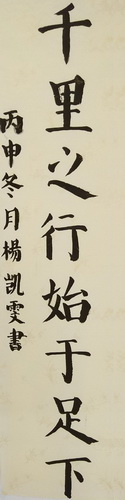 千里之行始于足下
丙申冬月楊凱雯書